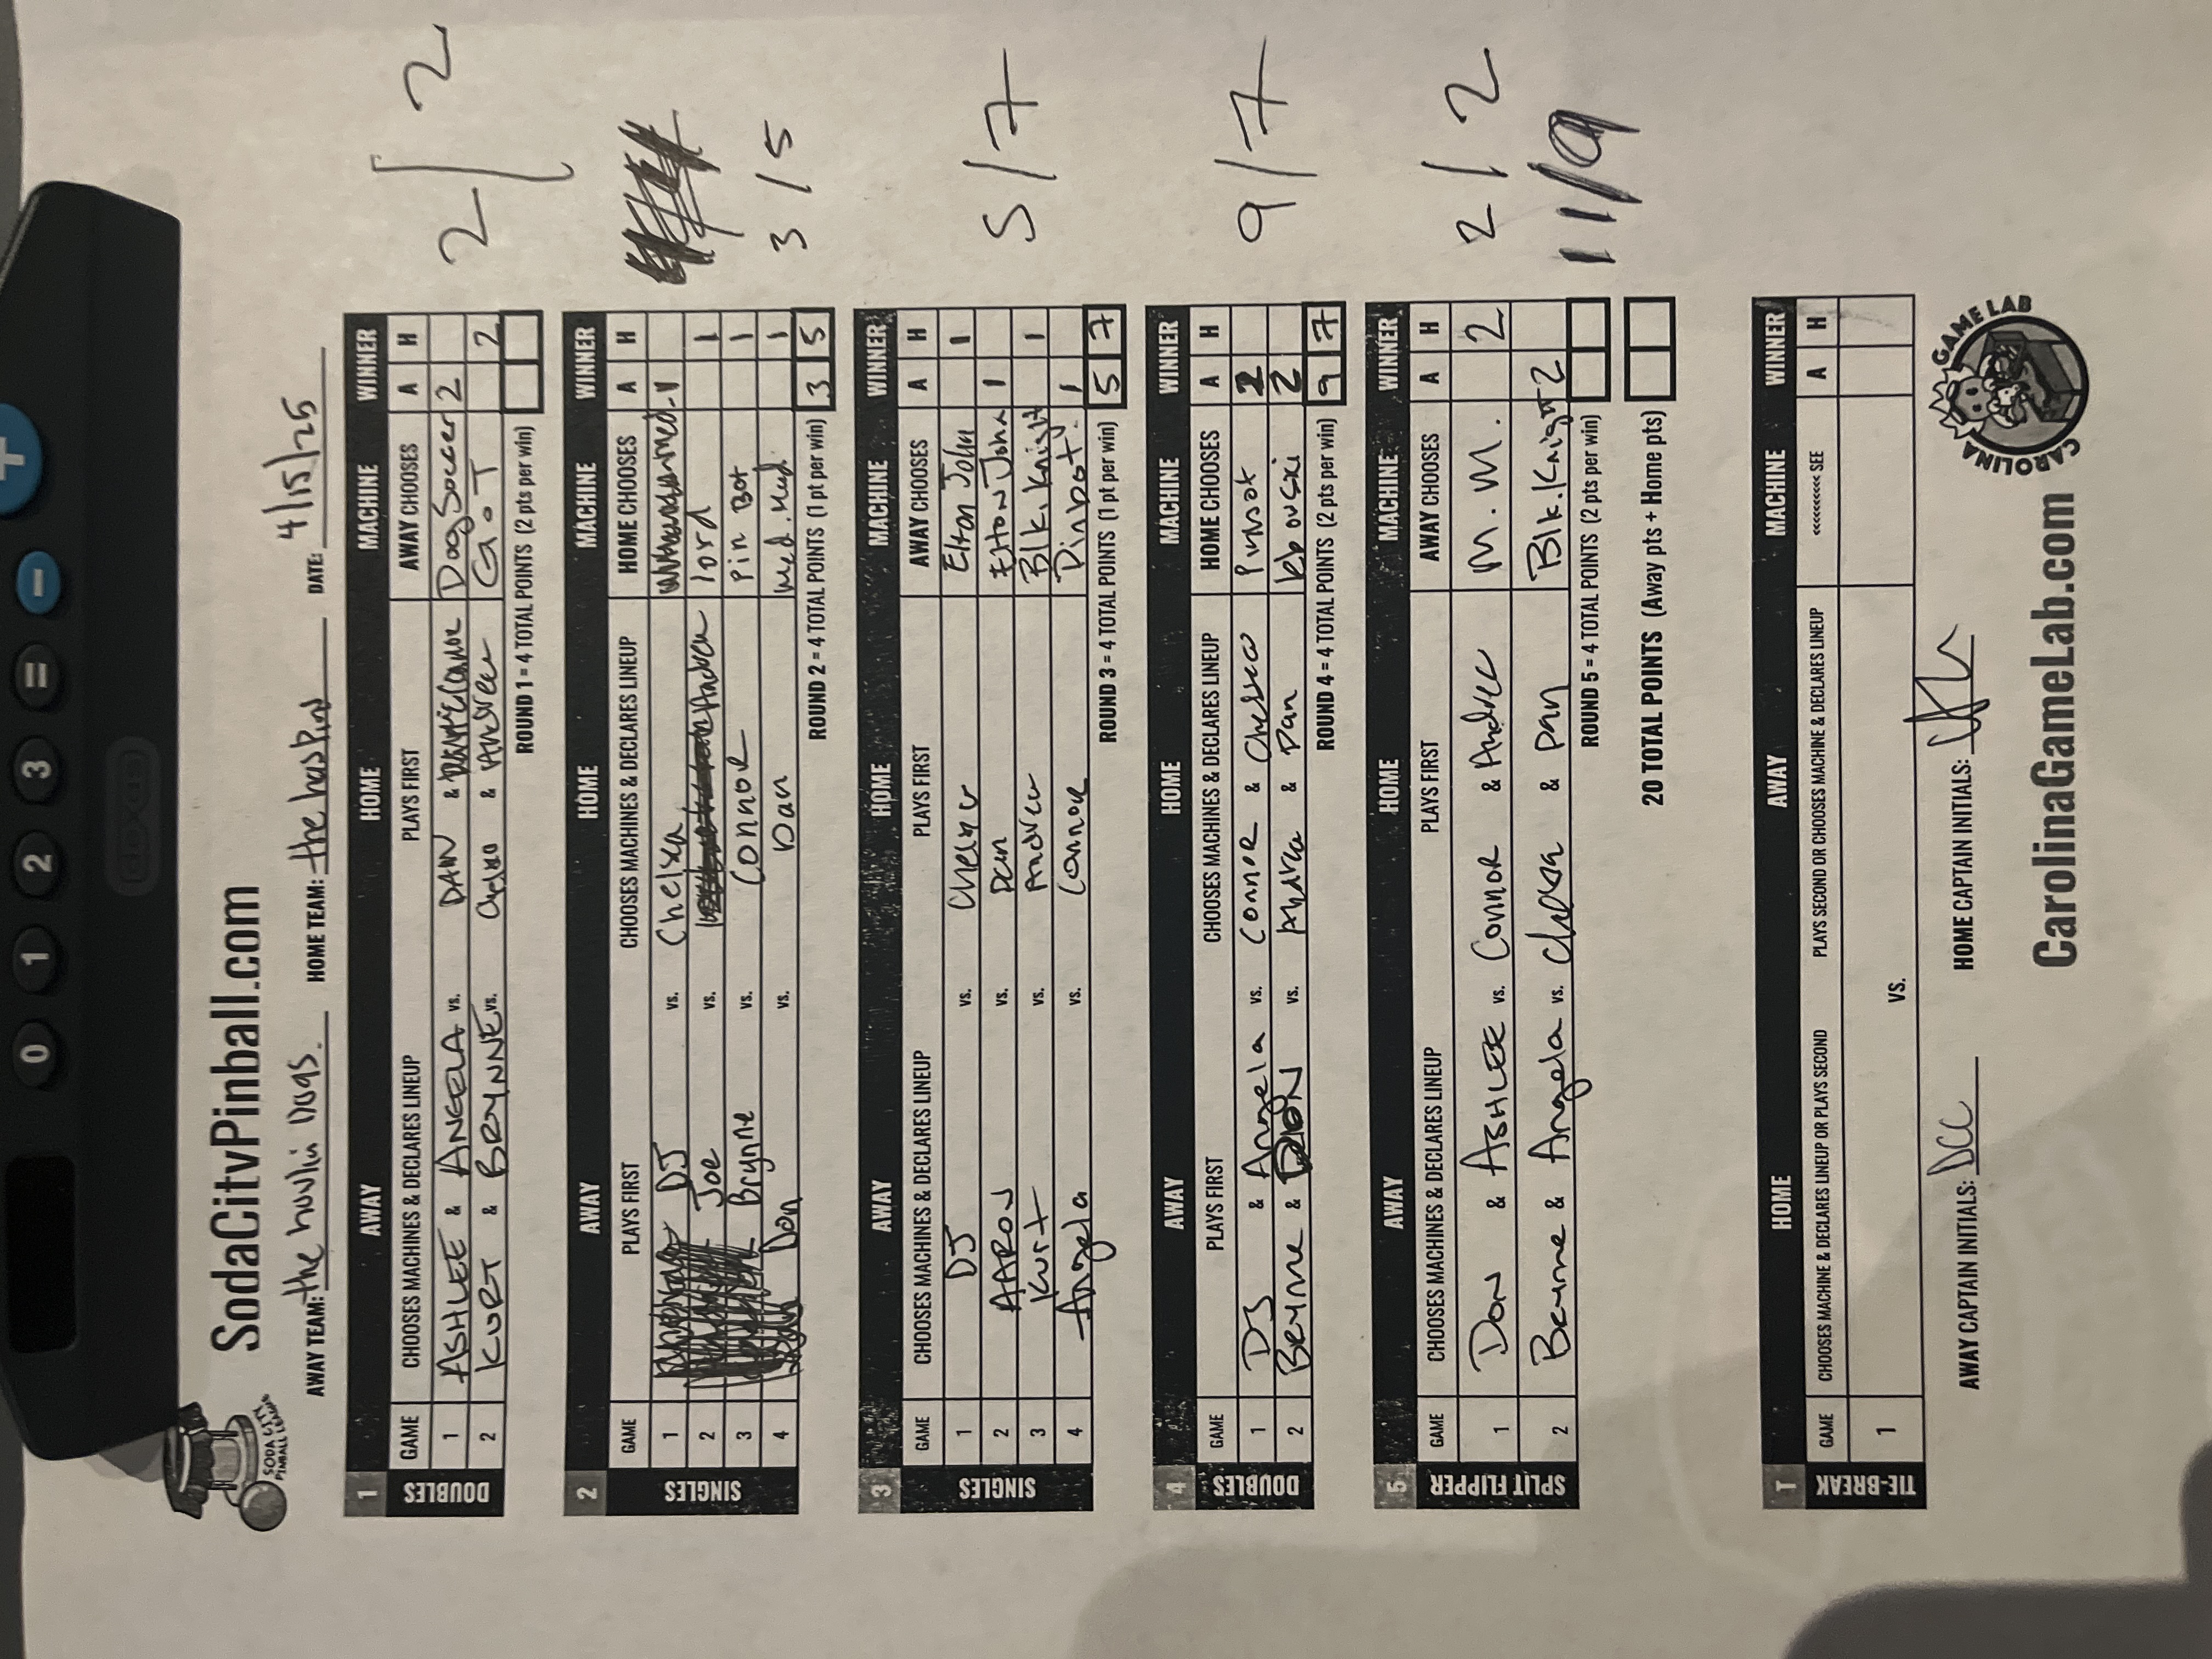 SodaCityPinball.com
SODA CITY PINBALL LEAGUE
AWAY TEAM: the howlin Dogs. HOME TEAM: the hasPin DATE: 4/15/25
1 AWAY HOME MACHINE WINNER
DOUBLES GAME CHOOSES MACHINES & DECLARES LINEUP PLAYS FIRST AWAY CHOOSES A H
1 ASHLEE & ANGELA vs. DAN & Dog Soccer 2
2 KURT & BRYNNE vs. & Andrew G.o.T 2
ROUND 1 = 4 TOTAL POINTS (2 pts per win)
2 / 2
2 AWAY HOME MACHINE WINNER
SINGLES GAME PLAYS FIRST CHOOSES MACHINES & DECLARES LINEUP HOME CHOOSES A H
1 DJ vs. Chelsea 1
2 Joe vs. Andrew lord 1
3 Brynne vs. Connor Pin Bot 1
4 Don vs. Dan Med. Mad. 1
ROUND 2 = 4 TOTAL POINTS (1 pt per win) 3 5
3 / 5
3 AWAY HOME MACHINE WINNER
SINGLES GAME CHOOSES MACHINES & DECLARES LINEUP PLAYS FIRST AWAY CHOOSES A H
1 DJ vs. Chelsea Elton John 1
2 AARON vs. Dan Elton John 1
3 Kurt vs. Andrew Blk. Knight 1
4 Angela vs. Connor Pinbot. 1
ROUND 3 = 4 TOTAL POINTS (1 pt per win) 5 7
5 / 7
4 AWAY HOME MACHINE WINNER
DOUBLES GAME PLAYS FIRST CHOOSES MACHINES & DECLARES LINEUP HOME CHOOSES A H
1 DJ & Angela vs. Connor & Chelsea Pinbot 2
2 Brynne & DON vs. Andrew & Dan lebowski 2
ROUND 4 = 4 TOTAL POINTS (2 pts per win) 9 7
9 / 7
5 AWAY HOME MACHINE WINNER
SPLIT FLIPPER GAME CHOOSES MACHINES & DECLARES LINEUP PLAYS FIRST AWAY CHOOSES A H
1 DON & ASHLEE vs. Connor & Andrew M. M. 2
2 Brynne & Angela vs. Chelsea & Dan Blk. Knight 2
ROUND 5 = 4 TOTAL POINTS (2 pts per win)
2 / 2
11/9
20 TOTAL POINTS (Away pts + Home pts)
T HOME AWAY MACHINE WINNER
TIE-BREAK GAME CHOOSES MACHINE & DECLARES LINEUP OR PLAYS SECOND PLAYS SECOND OR CHOOSES MACHINE & DECLARES LINEUP <<<<<<<<<< SEE A H
1 VS.
AWAY CAPTAIN INITIALS: DCC HOME CAPTAIN INITIALS:
CarolinaGameLab.com
CAROLINA GAME LAB
0 1 2 3 = - +